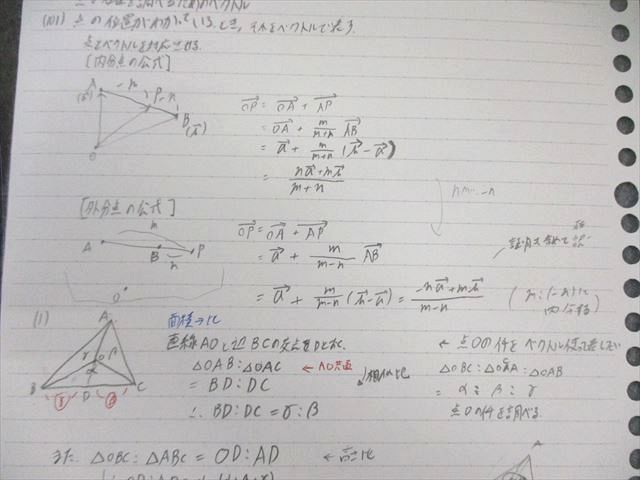 (101) 点の位置がわかっているとき, それをベクトルで表す.
点とベクトルを対応させる.
[内分点の公式]
A (a→) m P n B (b→) O
OP→ = OA→ + AP→
= OA→ + m/(m+n) AB→
= a→ + m/(m+n) (b→ - a→)
= (na→ + mb→)/(m+n)
[外分点の公式]
A m B n P O
OP→ = OA→ + AP→
= a→ + m/(m-n) AB→
= a→ + m/(m-n) (b→ - a→) = (-na→ + mb→)/(m-n)
(1)
A B D C O α β γ
面積→比
直線AOと辺BCの交点をDとおく.
△OAB:△OAC ← AO共通
= BD:DC
∴ BD:DC = γ:β
← 点Oの位置をベクトル使って表したい
△OBC:△OCA:△OAB
= α:β:γ
点Oの位置を調べる.
また △OBC:△ABC = OD:AD ← 高さ比